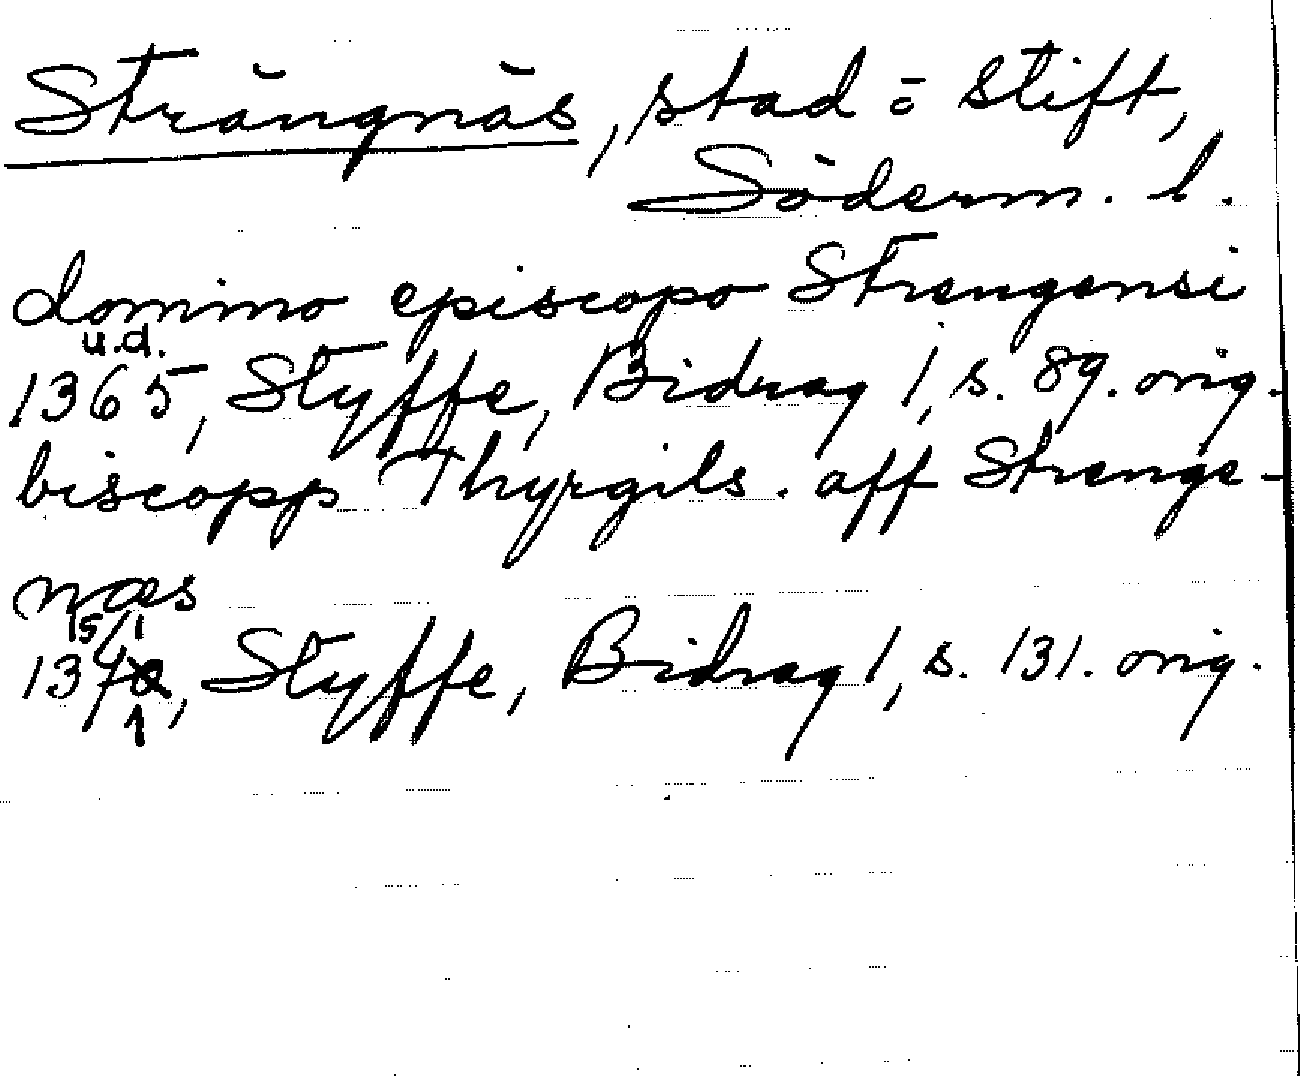 Strängnäs, stad o. stift,
Söderm. l.
domino episcopo Strengensi
u.d.
1365, Styffe, Bidrag 1, s. 89. orig.
biscopp Thyrgils. aff Strenge-
næs
15/1
1371, Styffe, Bidrag 1, s. 131. orig.